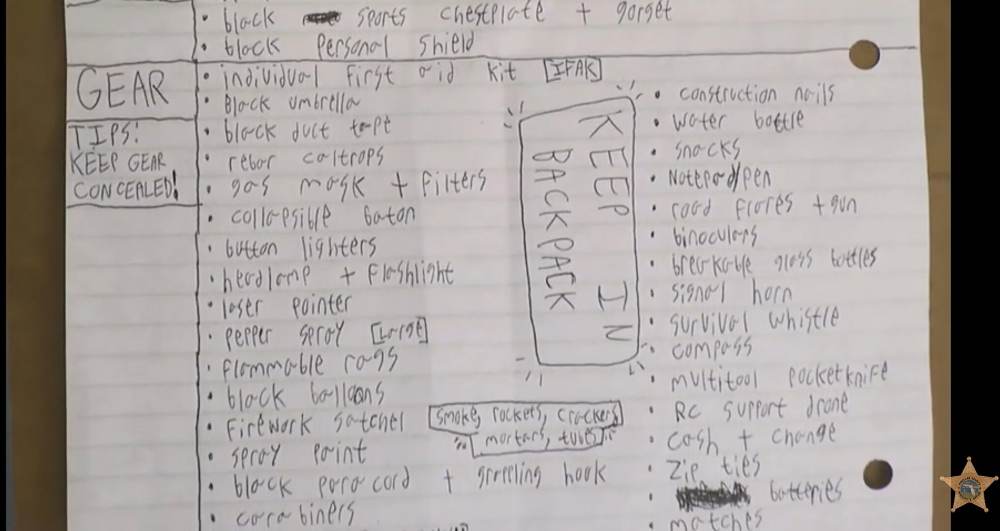 • black sports chestplate + gorget
• black personal shield
GEAR
TIPS:
KEEP GEAR
CONCEALED!
• individual first aid kit [IFAK]
• Black umbrella
• black duct tape
• rebar caltrops
• gas mask + filters
• collapsible baton
• button lighters
• headlamp + flashlight
• laser pointer
• pepper spray [Large]
• flammable rags
• black balloons
• firework satchel [smoke, rockets, crackers
mortars, tubes]
• spray paint
• black paracord + grappling hook
• carabiners
KEEP IN
BACKPACK
• construction nails
• water bottle
• snacks
• Notepad/pen
• road flares + gun
• binoculars
• breakable glass bottles
• signal horn
• survival whistle
• compass
• multitool pocketknife
• RC support drone
• cash + change
• zip ties
• batteries
• matches